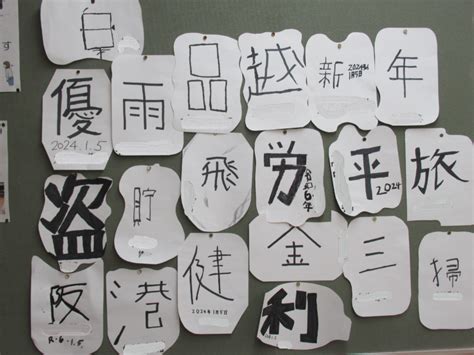 皇
優
2024.1.5
雨
品
越
新
2024年
1月5日
年
盗
貯
飛
労
令和6年
平
2024
旅
阪
R.6.1.5
港
健
2024年1月5日
金
三
掃
利
す